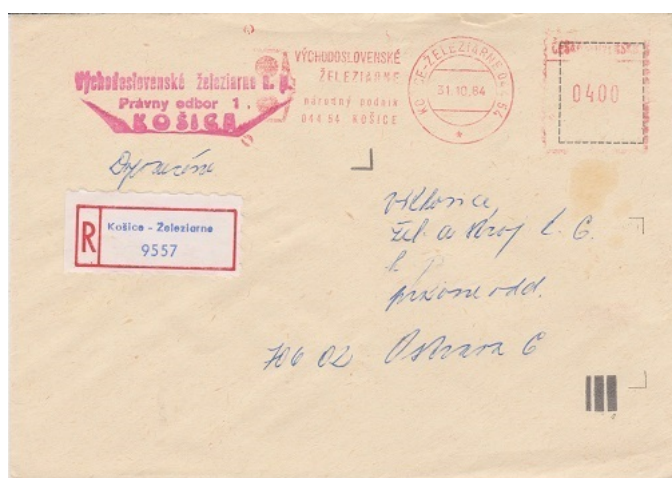 Východoslovenské železiarne n. p.
Právny odbor 1
KOŠICE
VÝCHODOSLOVENSKÉ
ŽELEZIARNE
národný podnik
044 54 KOŠICE
KOŠICE-ŽELEZIARNE 044 54
31.10.84
ČESKOSLOVENSKO
0400
Doporučene
R
Košice - Železiarne
9557
Vítkovice
žel. a stroj
právne odd.
706 02 Ostrava 6